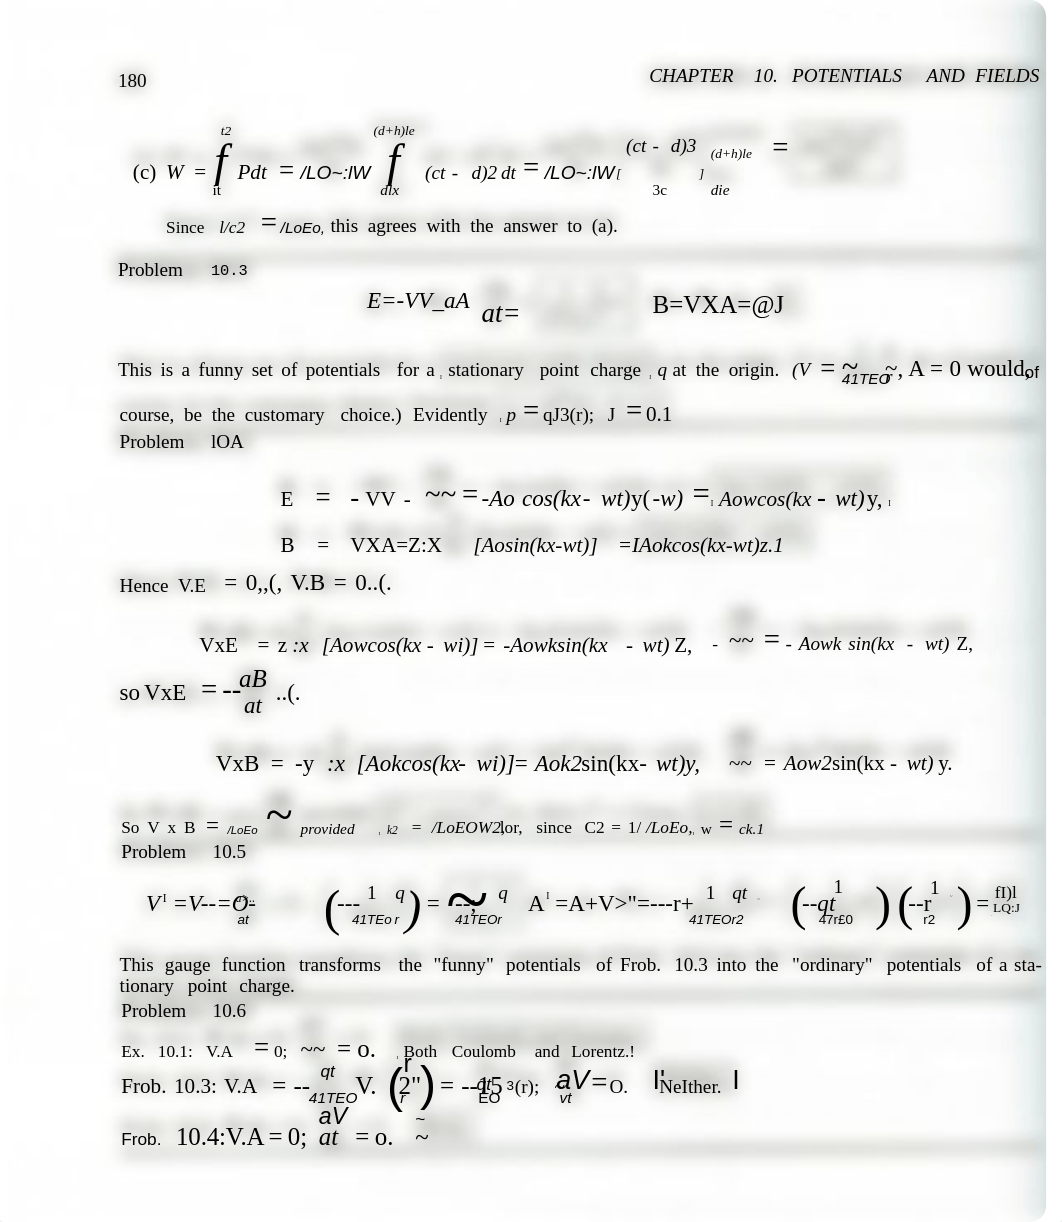 180 CHAPTER 10. POTENTIALS AND FIELDS
t2 (d+h)le
(c) W = f Pdt = /LO~:lW f (ct - d)2 dt = /LO~:lW [ (ct - d)3 ] (d+h)le =
it dlx 3c die
Since l/c2 = /LoEo, this agrees with the answer to (a).
Problem 10.3
E=-VV_aA at= B=VXA=@J
This is a funny set of potentials for a stationary point charge q at the origin. (V = ~ 41TEO ~, A = 0 would, of
course, be the customary choice.) Evidently p = qJ3(r); J = 0.1
Problem lOA
E = - VV - ~~ = -Ao cos(kx - wt)y(-w) = Aowcos(kx - wt)y,
B = VXA=Z:X [Aosin(kx-wt)] =IAokcos(kx-wt)z.1
Hence V.E = 0,,(, V.B = 0..(.
VxE = z :x [Aowcos(kx - wi)] = -Aowksin(kx - wt) Z, - ~~ = - Aowk sin(kx - wt) Z,
so VxE = -- aB ..(.
at
VxB = -y :x [Aokcos(kx- wi)]= Aok2sin(kx- wt)y, ~~ = Aow2sin(kx - wt) y.
So V x B = /LoEo ~ provided k2 = /LoEOW2, lor, since C2 = 1/ /LoEo, w = ck.1
Problem 10.5
V' =V--=O- (--- 1 q ) = --~; q A' =A+V>"=---r+ 1 qt (--qt 1 ) (--r 1 ) = fI)l
at 41TEo r 41TEOr 41TEOr2 47r£0 r2 LQ:J
This gauge function transforms the "funny" potentials of Frob. 10.3 into the "ordinary" potentials of a sta-
tionary point charge.
Problem 10.6
Ex. 10.1: V.A = 0; ~~ = o. Both Coulomb and Lorentz.!
Frob. 10.3: V.A = -- qt 41TEO V. ( r 2" r ) = -- qt EO 15 3(r); aV vt =O. I'NeIther. I
Frob. 10.4:V.A = 0; aV at = o. ~ ~